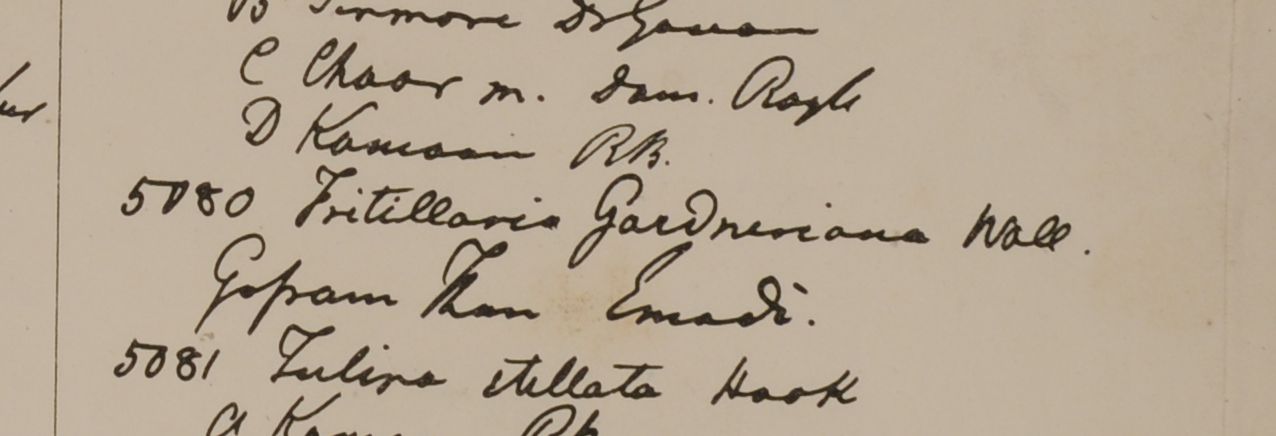 B Sirmore Dr Govan
C Choor m. Dom. Royle
D Kamaon RB.
5080 Fritillaria Gardneriana Wall.
Than Emodi.
5081 Tulipa stellata Hook
a